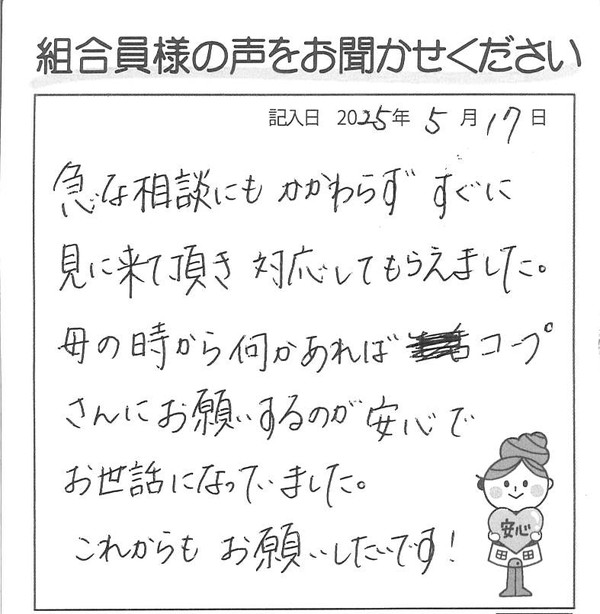 組合員様の声をお聞かせください
記入日 2025年 5月17日
急な相談にもかかわらず すぐに
見に来て頂き 対応してもらえました。
母の時から何かあれば コープ
さんにお願いするのが安心で
お世話になっていました。
これからも お願いしたいです!
安心